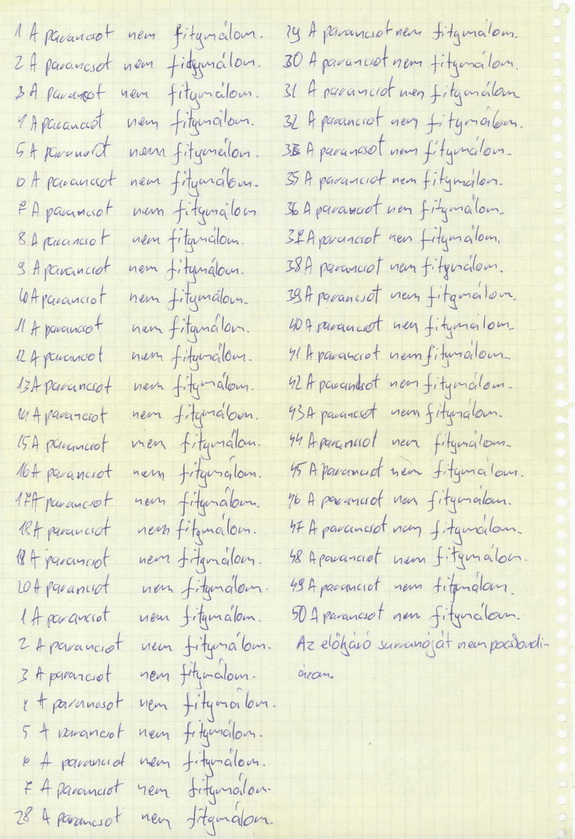 1 A parancsot nem fitymálom.
2 A parancsot nem fitymálom.
3 A parancsot nem fitymálom.
4 A parancsot nem fitymálom.
5 A parancsot nem fitymálom.
6 A parancsot nem fitymálom.
7 A parancsot nem fitymálom
8 A parancsot nem fitymálom.
9 A parancsot nem fitymálom.
10 A parancsot nem fitymálom.
11 A parancsot nem fitymálom.
12 A parancsot nem fitymálom.
13 A parancsot nem fitymálom.
14 A parancsot nem fitymálom.
15 A parancsot nem fitymálom.
16 A parancsot nem fitymálom.
17 A parancsot nem fitymálom.
18 A parancsot nem fitymálom.
19 A parancsot nem fitymálom.
20 A parancsot nem fitymálom.
1 A parancsot nem fitymálom.
2 A parancsot nem fitymálom.
3 A parancsot nem fitymálom.
4 A parancsot nem fitymálom.
5 A parancsot nem fitymálom.
6 A parancsot nem fitymálom.
7 A parancsot nem fitymálom.
28 A parancsot nem fitymálom.
29 A parancsot nem fitymálom.
30 A parancsot nem fitymálom.
31 A parancsot nem fitymálom
32 A parancsot nem fitymálom.
33 A parancsot nem fitymálom.
35 A parancsot nem fitymálom.
36 A parancsot nem fitymálom.
37 A parancsot nem fitymálom.
38 A parancsot nem fitymálom.
39 A parancsot nem fitymálom.
40 A parancsot nem fitymálom.
41 A parancsot nem fitymálom.
42 A parancsot nem fitymálom.
43 A parancsot nem fitymálom.
44 A parancsot nem fitymálom.
45 A parancsot nem fitymálom.
46 A parancsot nem fitymálom.
47 A parancsot nem fitymálom.
48 A parancsot nem fitymálom.
49 A parancsot nem fitymálom.
50 A parancsot nem fitymálom.
Az elöljáró surranóját nem